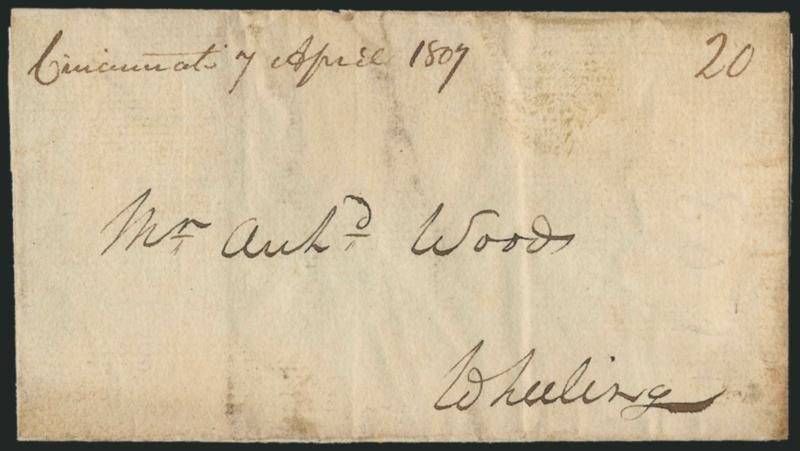 Cincinnati 7 April 1807 20
Mr Arch.d Woods
Wheeling